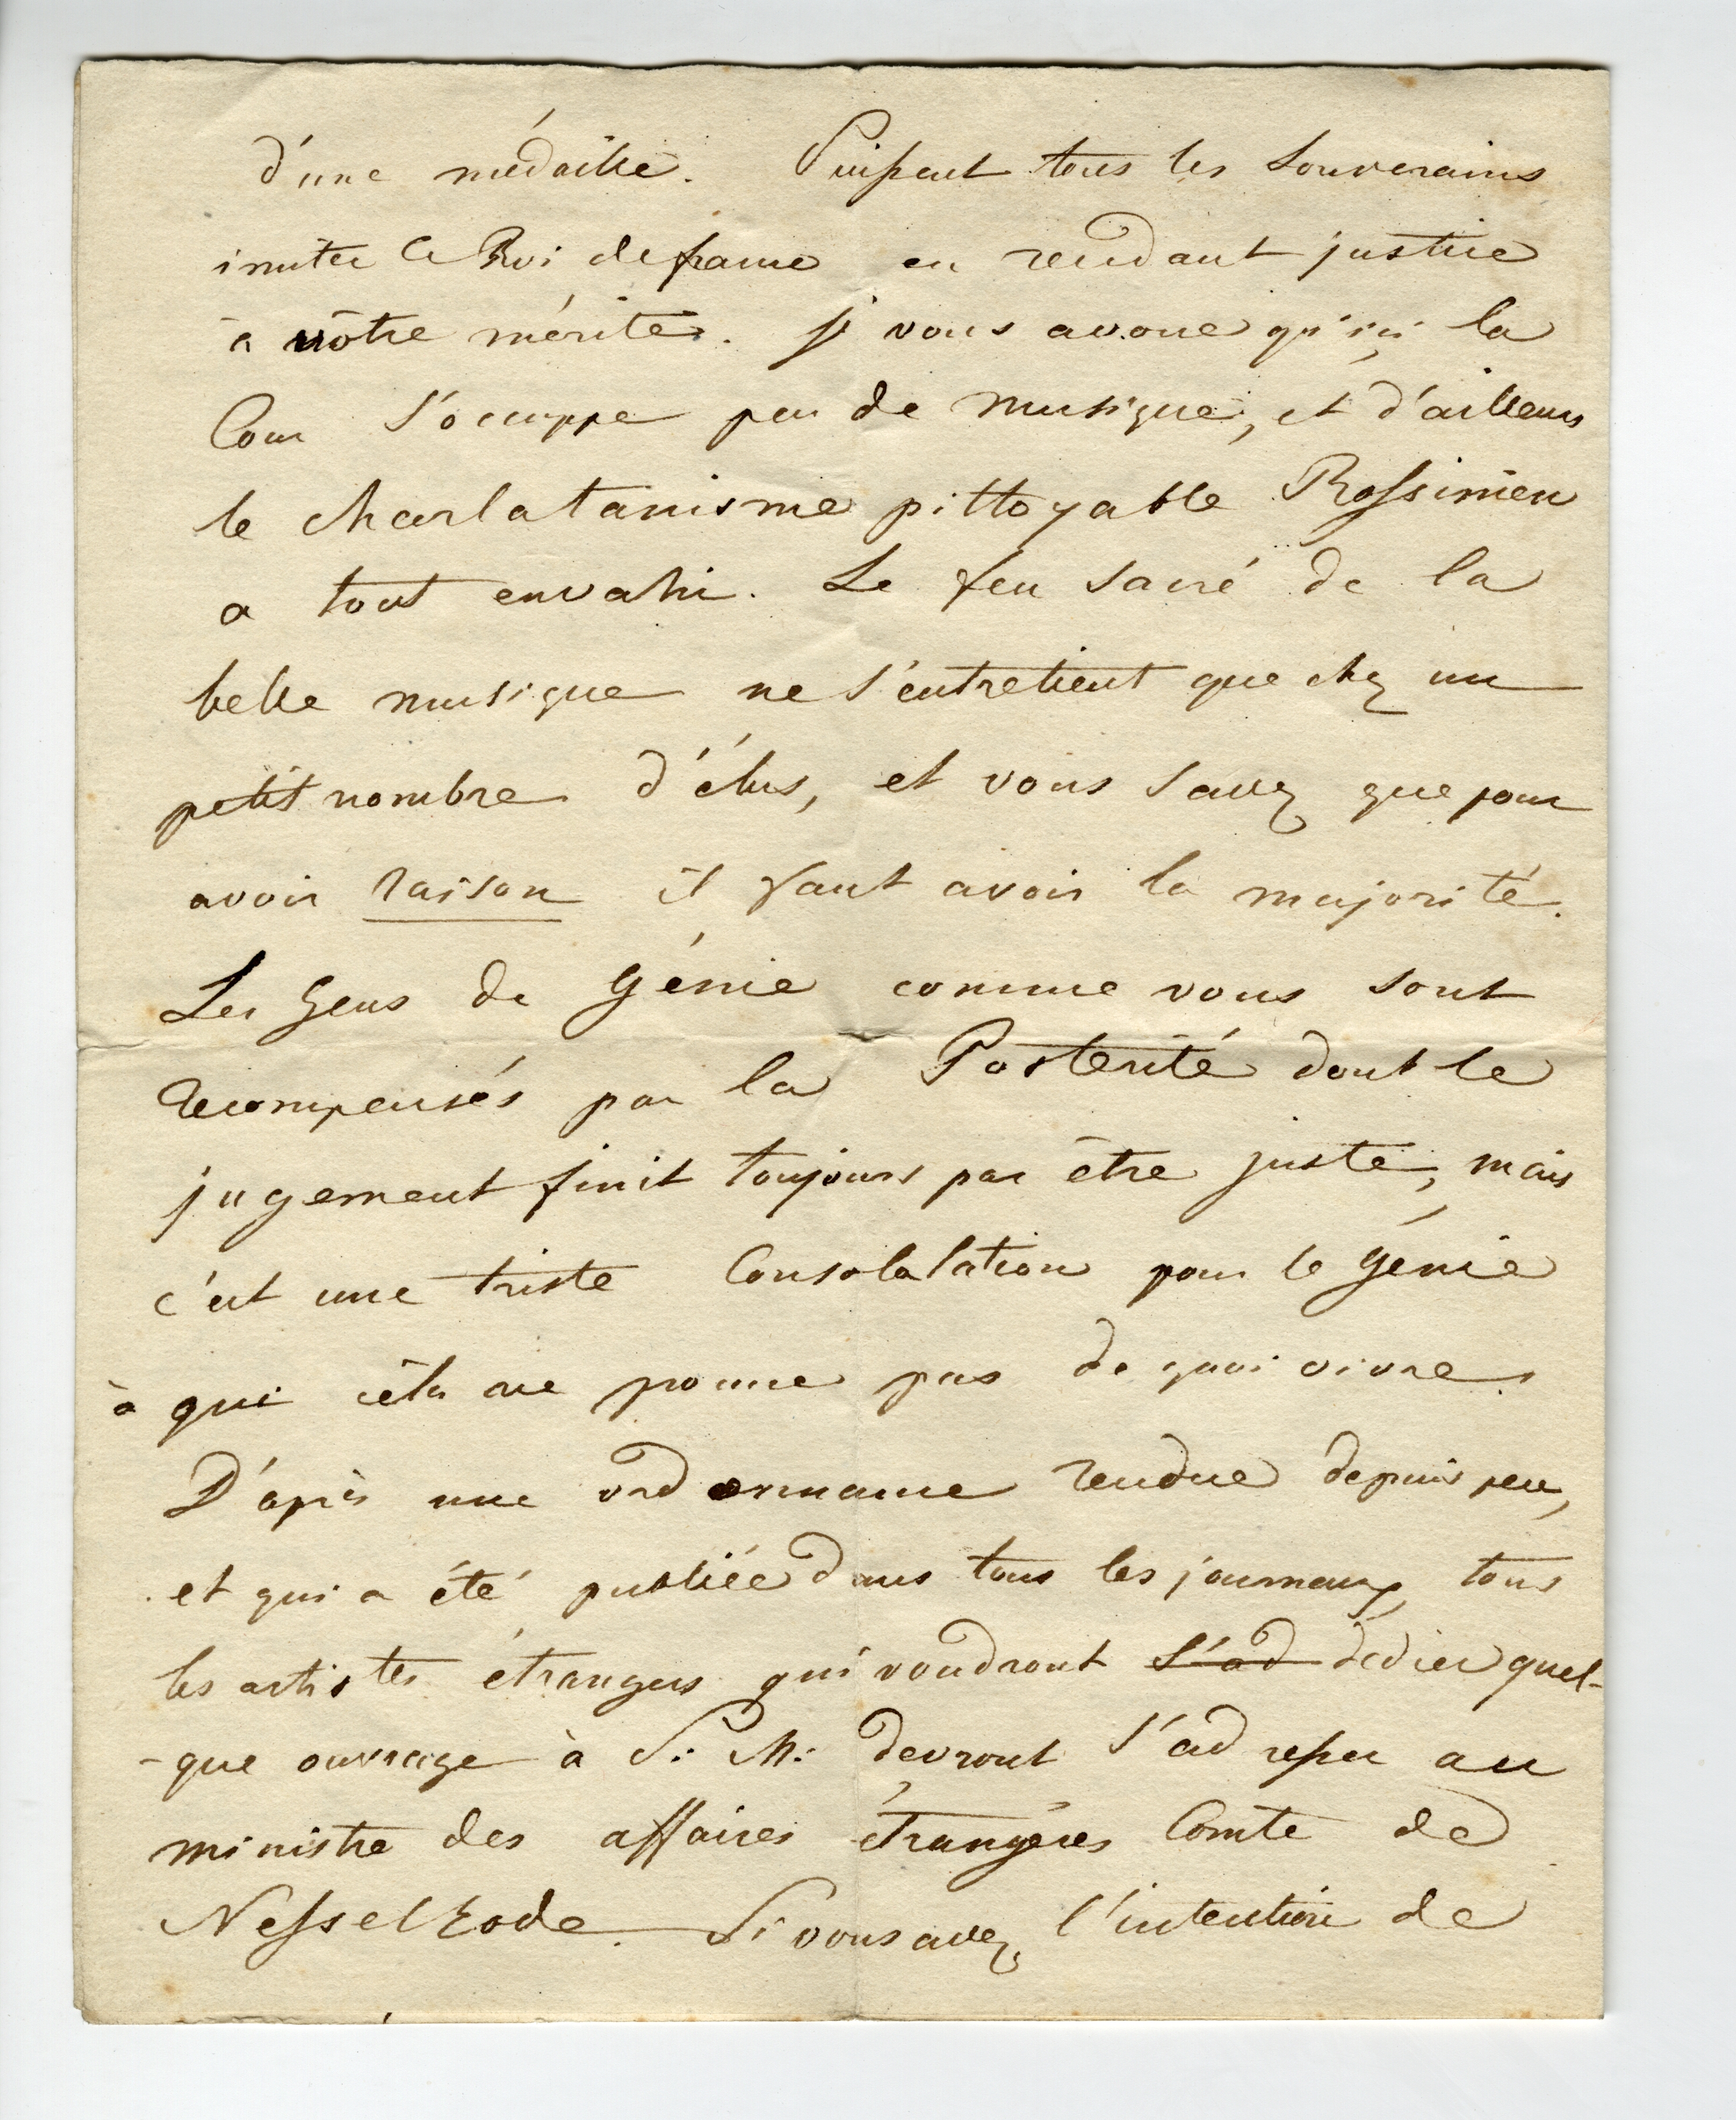 d'une médaille. Puissent tous les Souverains
imiter le Roi de france en rendant justice
à vôtre mérite. je vous avoue qu'ici la
Cour s'occuppe peu de musique, et d'ailleurs
le charlatanisme pittoyable Rossinien
a tout envahi. Le feu sacré de la
belle musique ne s'entretient que chez un
petit nombre d'élus, et vous savez que pour
avoir raison il faut avoir la majorité.
Les Gens de génie comme vous sont
recompensés par la Posterité dont le
jugement finit toujours par être juste, mais
c'est une triste Consolalation pour le génie
à qui céla ne donne pas de quoi vivre.
D'après une ordonnance rendue depuis peu,
et qui a été publiée dans tous les journaux, tous
les artistes étrangers qui voudront s'ad dédier quel-
-que ouvrage à S: M: devront s'adresser au
ministre des affaires étrangères Comte de
Nesselrode. Si vous avez l'intention de